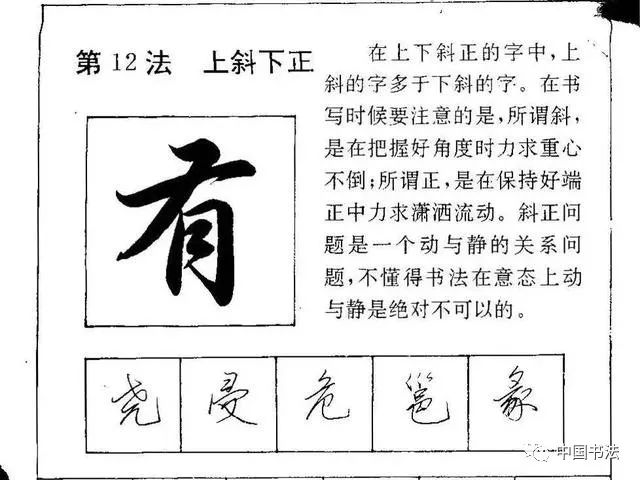 第12法 上斜下正
在上下斜正的字中,上
斜的字多于下斜的字。在书
写时候要注意的是,所谓斜,
是在把握好角度时力求重心
不倒;所谓正,是在保持好端
正中力求潇洒流动。斜正问
题是一个动与静的关系问
题,不懂得书法在意态上动
与静是绝对不可以的。
有
尧 危 彖
中国书法